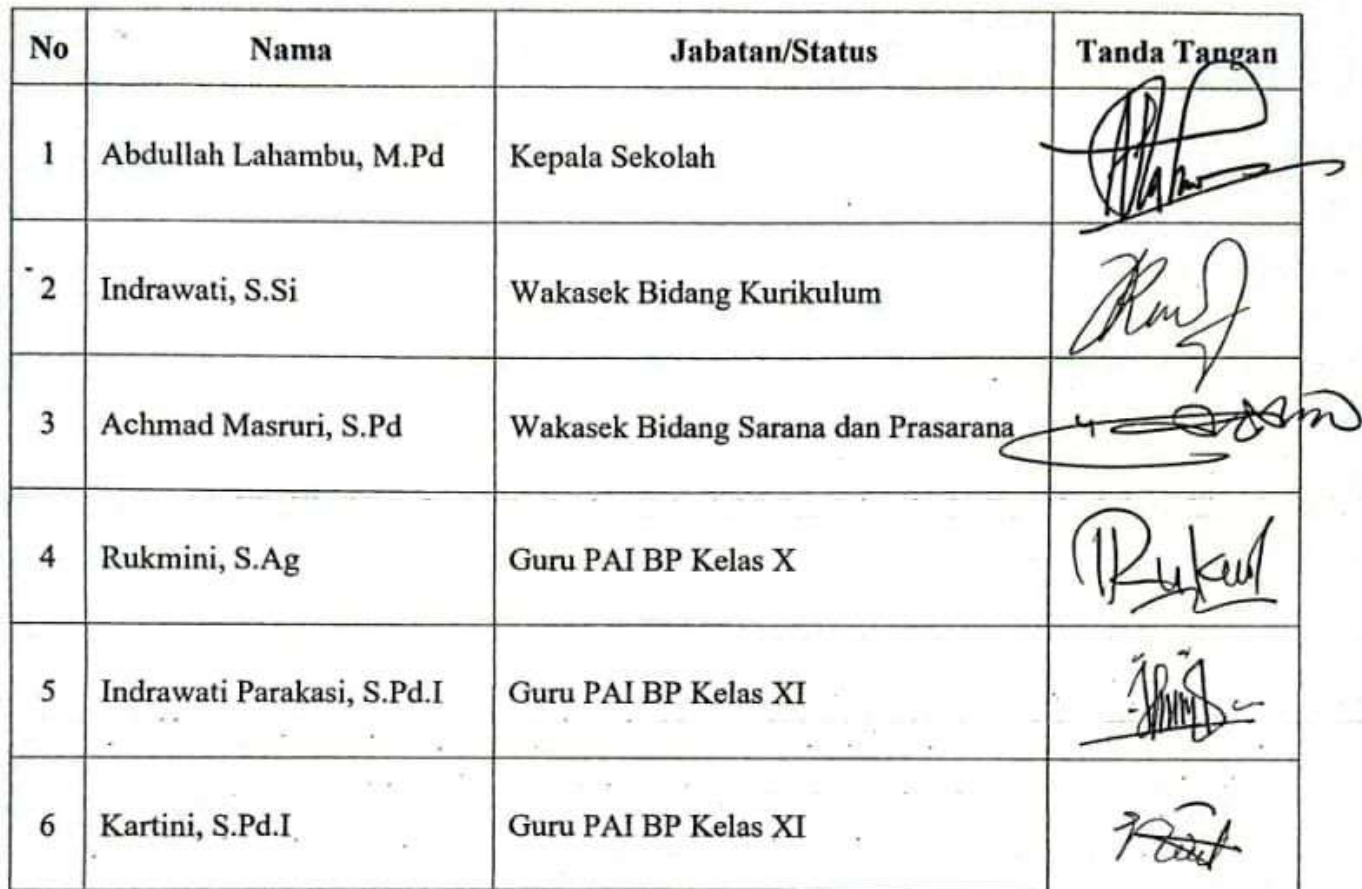 No Nama Jabatan/Status Tanda Tangan
1 Abdullah Lahambu, M.Pd Kepala Sekolah
2 Indrawati, S.Si Wakasek Bidang Kurikulum
3 Achmad Masruri, S.Pd Wakasek Bidang Sarana dan Prasarana
4 Rukmini, S.Ag Guru PAI BP Kelas X
5 Indrawati Parakasi, S.Pd.I Guru PAI BP Kelas XI
6 Kartini, S.Pd.I Guru PAI BP Kelas XI